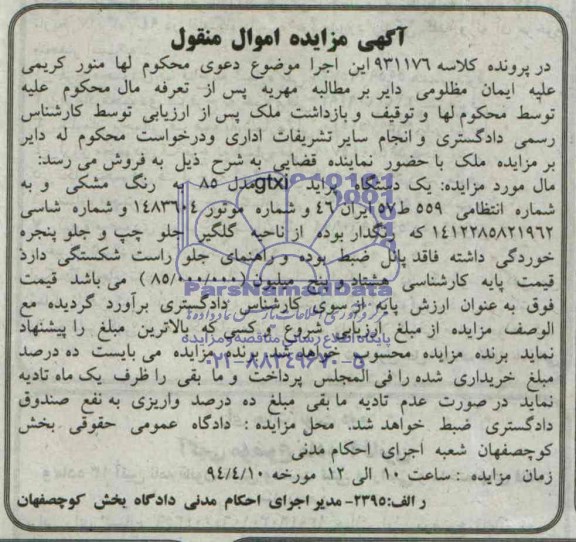 آگهی مزایده اموال منقول
در پرونده کلاسه ۹۳۱۱۷۶ این اجرا موضوع دعوی محکوم لها منور کریمی
علیه ایمان مظلومی دایر بر مطالبه مهریه پس از تعرفه مال محکوم علیه
توسط محکوم لها و توقیف و بازداشت ملک پس از ارزیابی توسط کارشناس
رسمی دادگستری و انجام سایر تشریفات اداری ودرخواست محکوم له دایر
بر مزایده ملک با حضور نماینده قضایی به شرح ذیل به فروش می رسد:
مال مورد مزایده: یک دستگاه پراید gtxi مدل ۸۵ به رنگ مشکی و به
شماره انتظامی ۵۵۹ ط ۵۷ ایران ۴۶ و شماره موتور ۱۴۸۳۶۰۴ و شماره شاسی
۱۴۱۲۲۸۵۸۲۱۹۶۲ که رنگدار بوده از ناحیه گلگیر جلو چپ و جلو پنجره
خوردگی داشته فاقد پانل ضبط بوده و راهنمای جلو راست شکستگی دارد
قیمت پایه کارشناسی هشتاد و پنج میلیون (۸۵/۰۰۰/۰۰۰) می باشد قیمت
فوق به عنوان ارزش پایه از سوی کارشناس دادگستری برآورد گردیده مع
الوصف مزایده از مبلغ ارزیابی شروع و کسی که بالاترین مبلغ را پیشنهاد
نماید برنده مزایده محسوب خواهد شد برنده مزایده می بایست ده درصد
مبلغ خریداری شده را فی المجلس پرداخت و ما بقی را ظرف یک ماه تادیه
نماید در صورت عدم تادیه ما بقی مبلغ ده درصد واریزی به نفع صندوق
دادگستری ضبط خواهد شد. محل مزایده : دادگاه عمومی حقوقی بخش
کوچصفهان شعبه اجرای احکام مدنی
زمان مزایده : ساعت ۱۰ الی ۱۲ مورخه ۹۴/۴/۱۰
ر الف:۲۳۹۵- مدیر اجرای احکام مدنی دادگاه بخش کوچصفهان
ParsNamadData
پایگاه اطلاع رسانی مناقصه و مزایده
۰۲۱-۸۸۳۴۹۶۷۰-۵